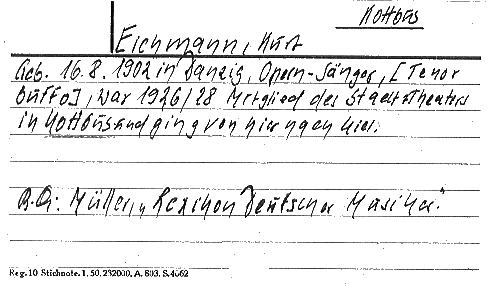 Kottbus
Eichmann, Kurt
Geb. 16.8.1902 in Danzig, Opern-Sänger, [Tenor
buffo], war 1926/28 Mitglied des Stadt-Theaters
in Kottbus und ging von hier nach Kiel.
Müller, "Lexikon Deutscher Musiker."
Reg. 10 Stichnote. 1. 50. 232000. A. 803. S. 4062